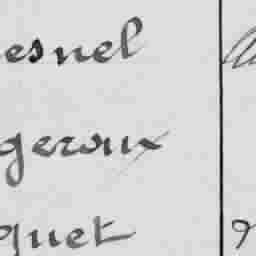 esnel
geroux
quet